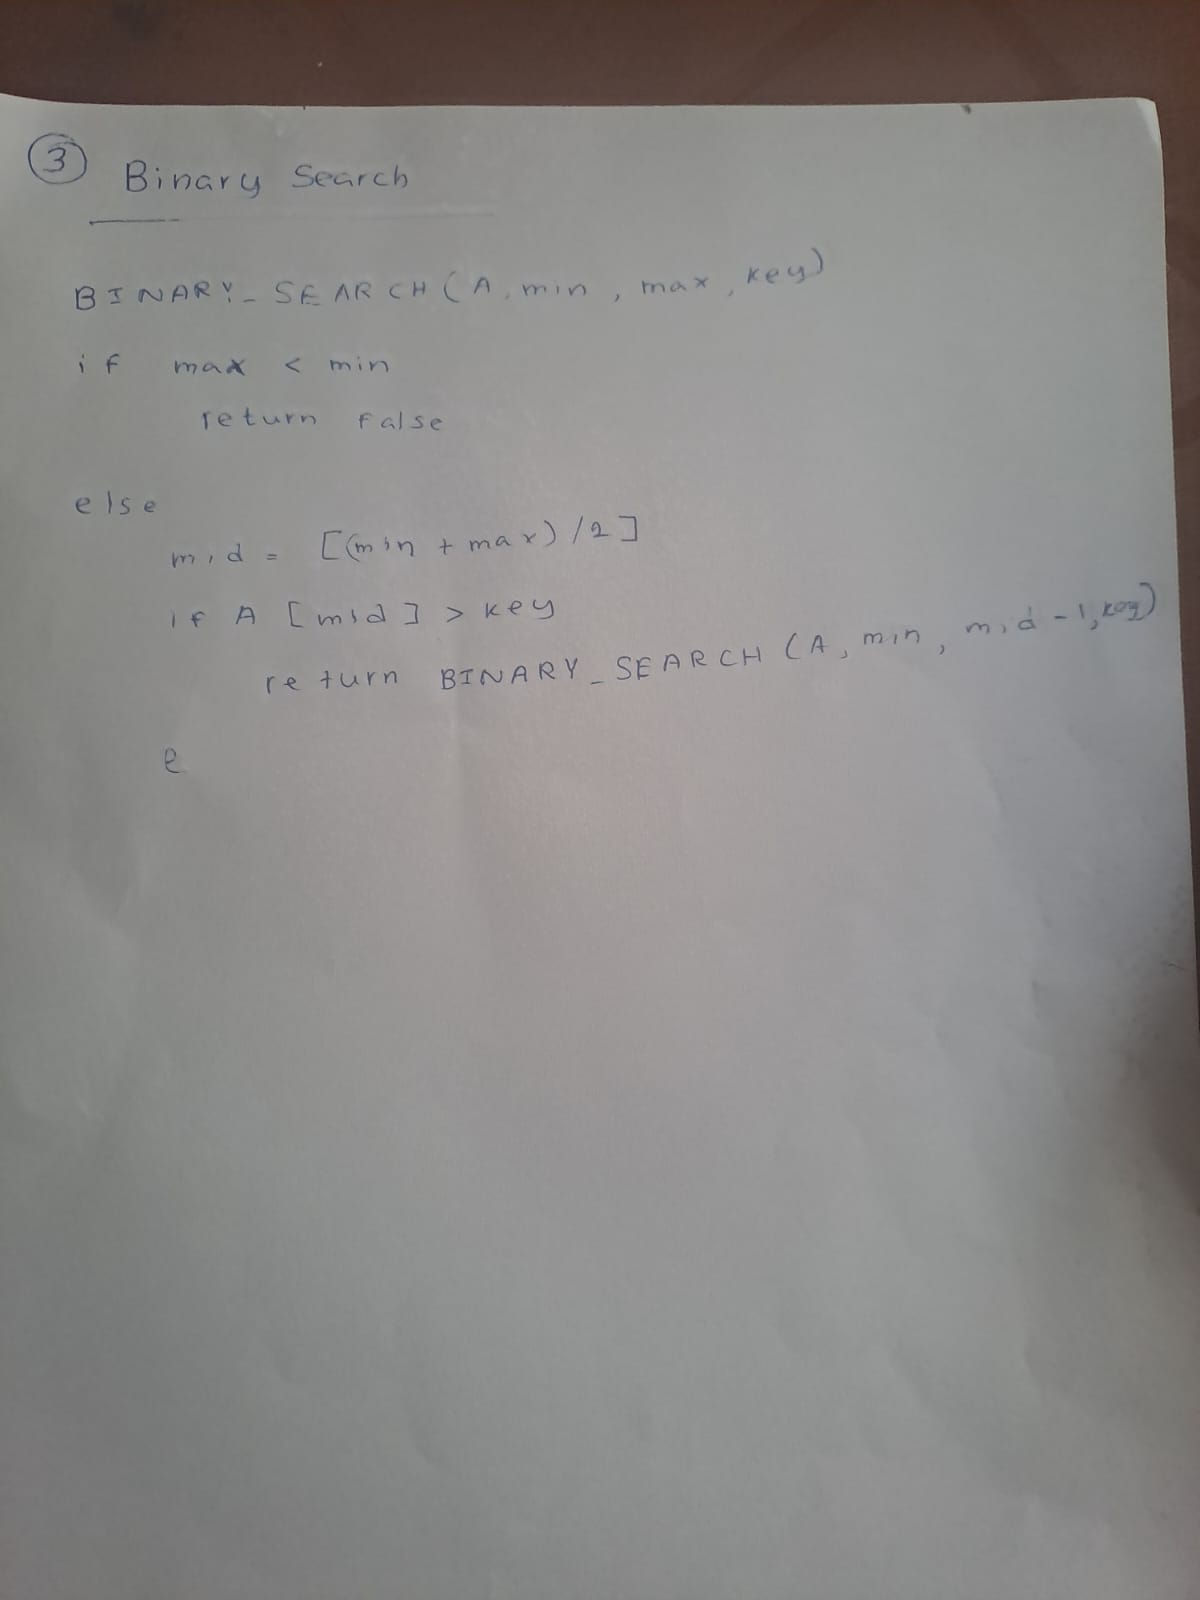 3 Binary Search
BINARY_SEARCH (A, min, max, key)
if max < min
return false
else
mid = [(min + max) /2]
if A [mid] > key
return BINARY_SEARCH (A, min, mid -1, key)
e